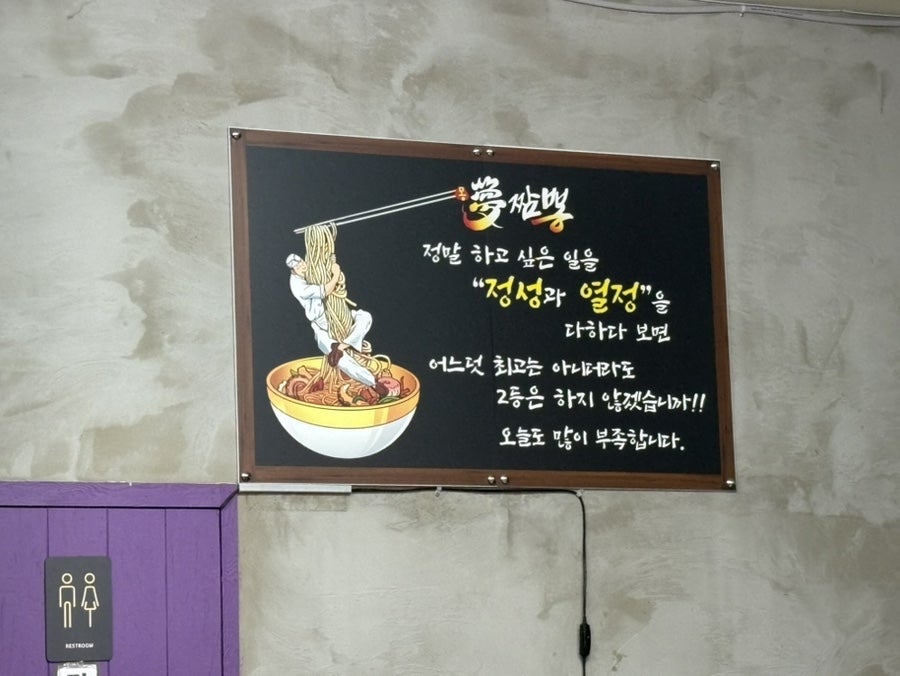 몽 夢 짬뽕
정말 하고 싶은 일을
"정성과 열정"을
다하다 보면
어느덧 최고는 아니더라도
2등은 하지 않겠습니까!!
오늘도 많이 부족합니다.
RESTROOM